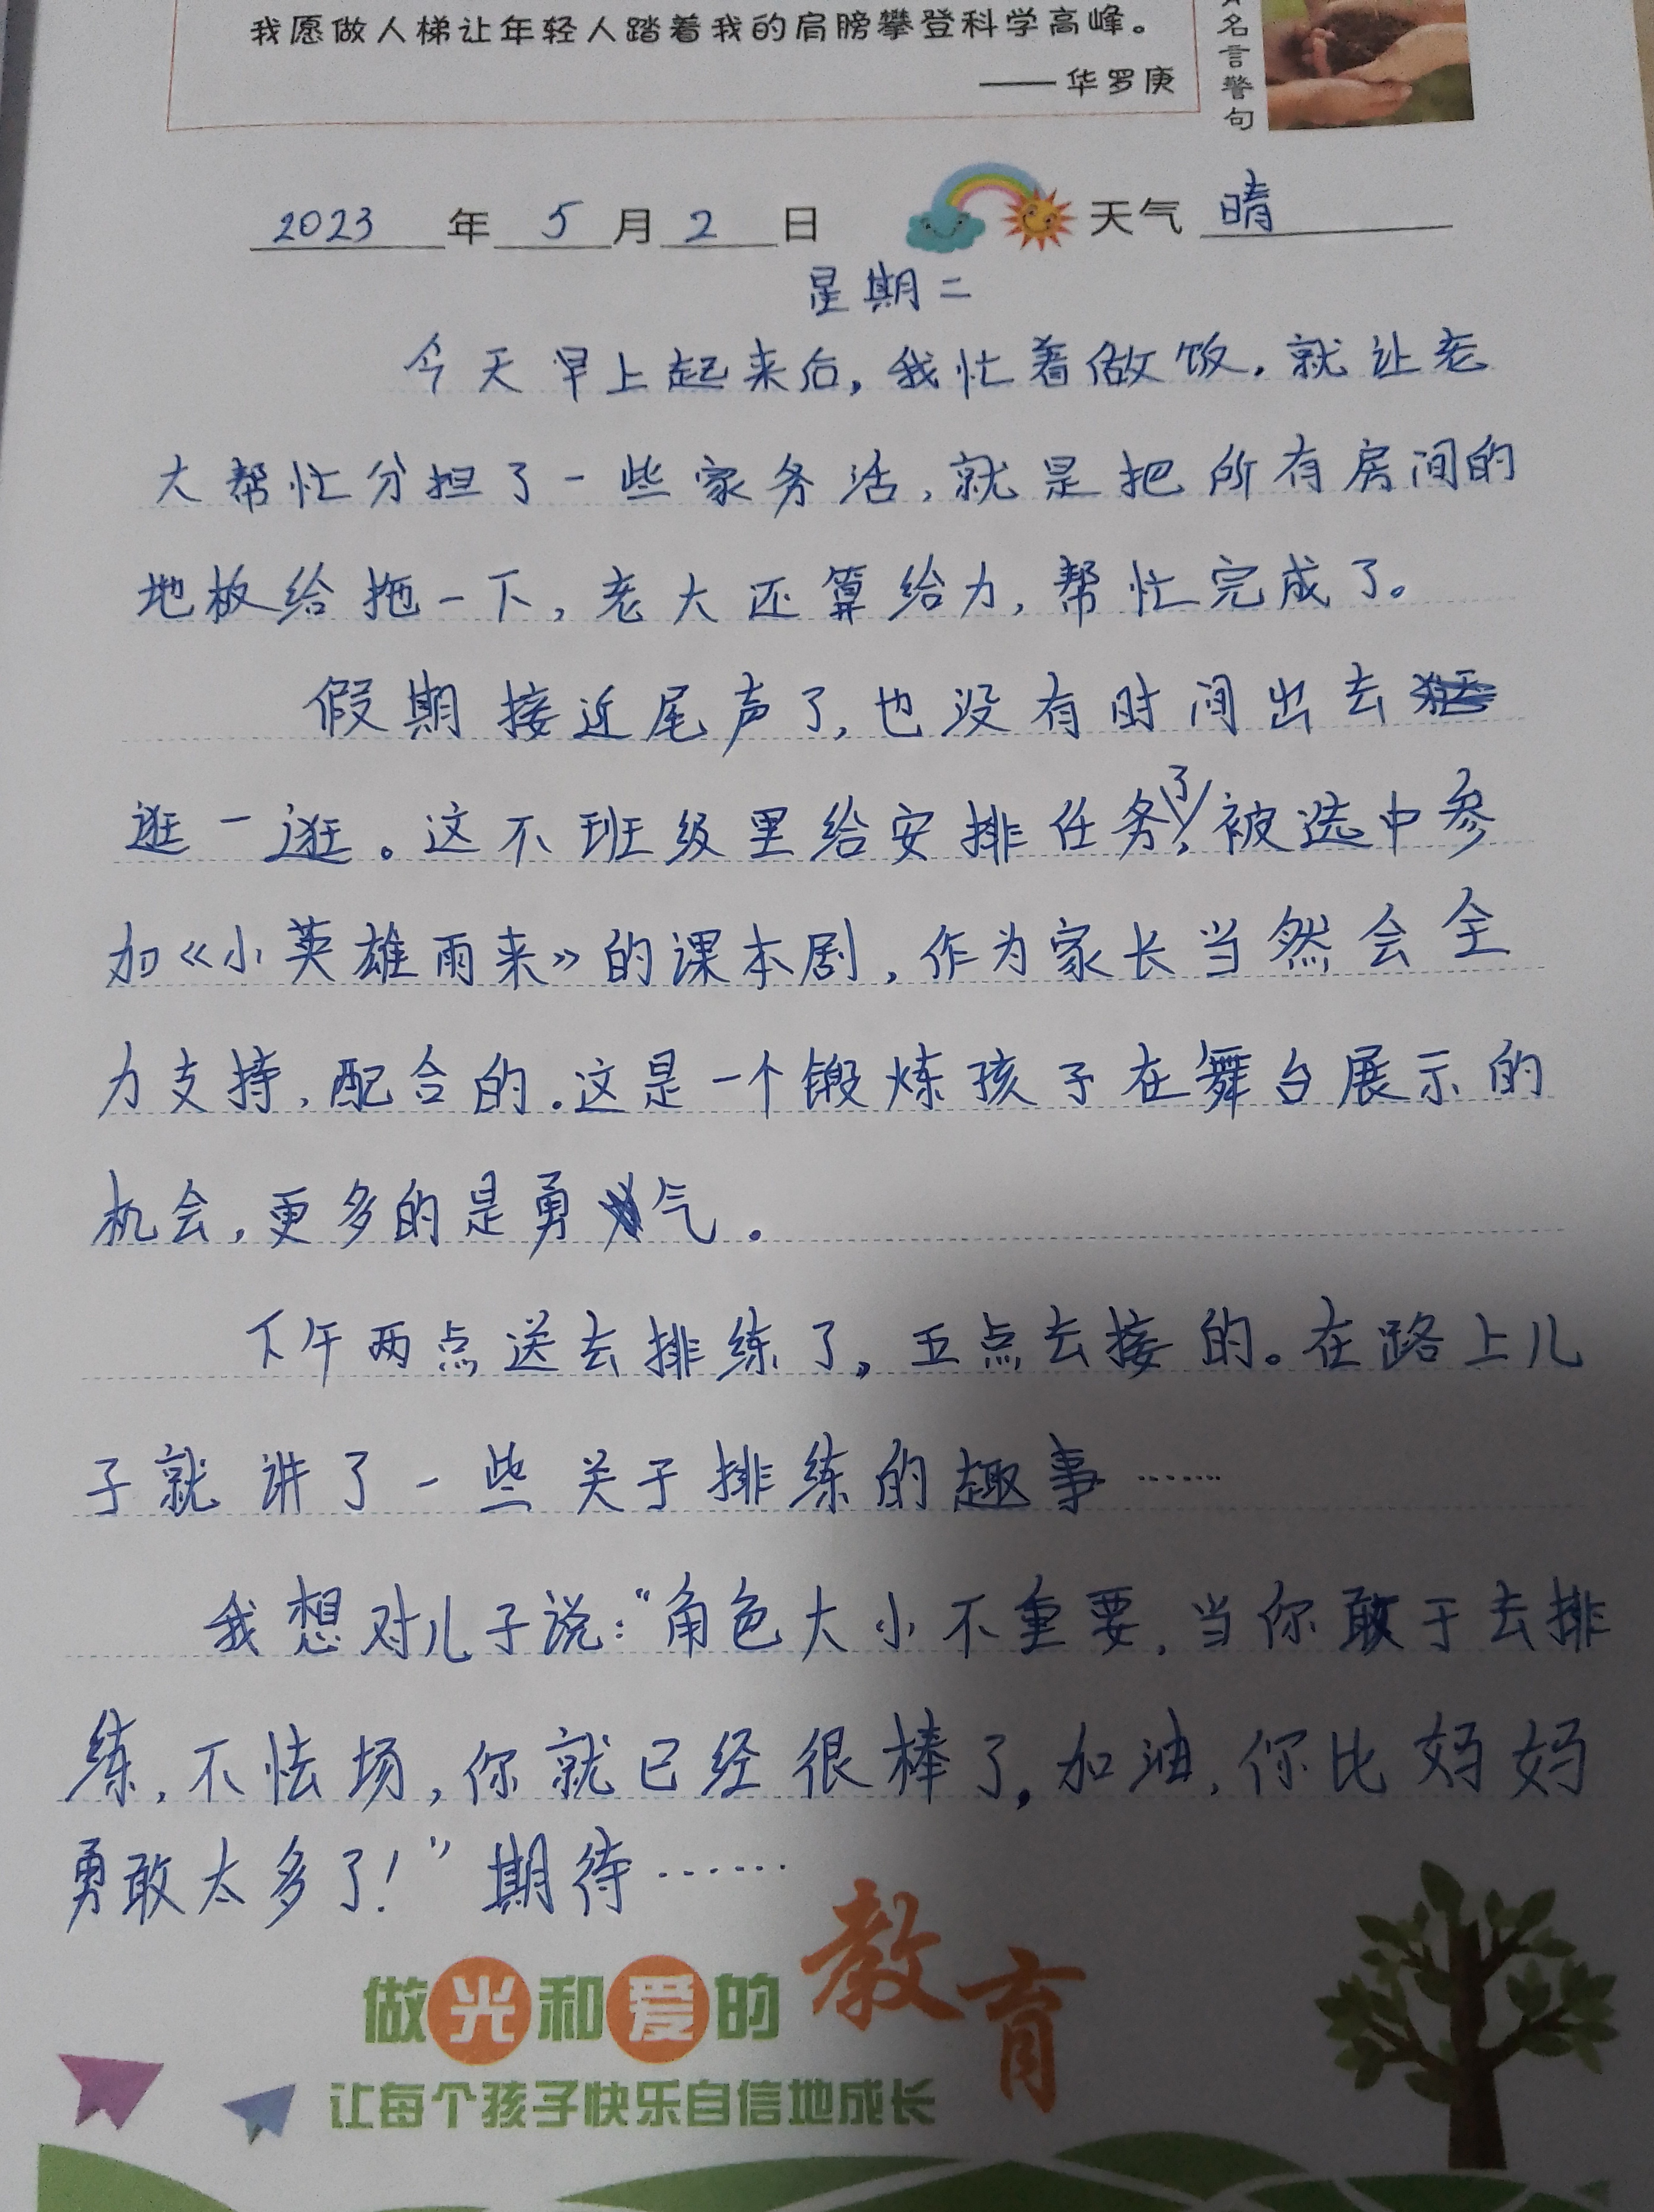 我愿做人梯让年轻人踏着我的肩膀攀登科学高峰。
——华罗庚
名言警句
2023年5月2日 天气 晴
星期二
今天早上起来后,我忙着做饭,就让老
大帮忙分担了一些家务活,就是把所有房间的
地板给拖一下,老大还算给力,帮忙完成了。
假期接近尾声了,也没有时间出去
逛一逛。这不班级里给安排任务了,被选中参
加《小英雄雨来》的课本剧,作为家长当然会全
力支持,配合的.这是一个锻炼孩子在舞台展示的
机会,更多的是勇气。
下午两点送去排练了,五点去接的。在路上儿
子就讲了一些关于排练的趣事……
我想对儿子说:"角色大小不重要,当你敢于去排
练,不怯场,你就已经很棒了,加油,你比妈妈
勇敢太多了!"期待……
做光和爱的教育
让每个孩子快乐自信地成长